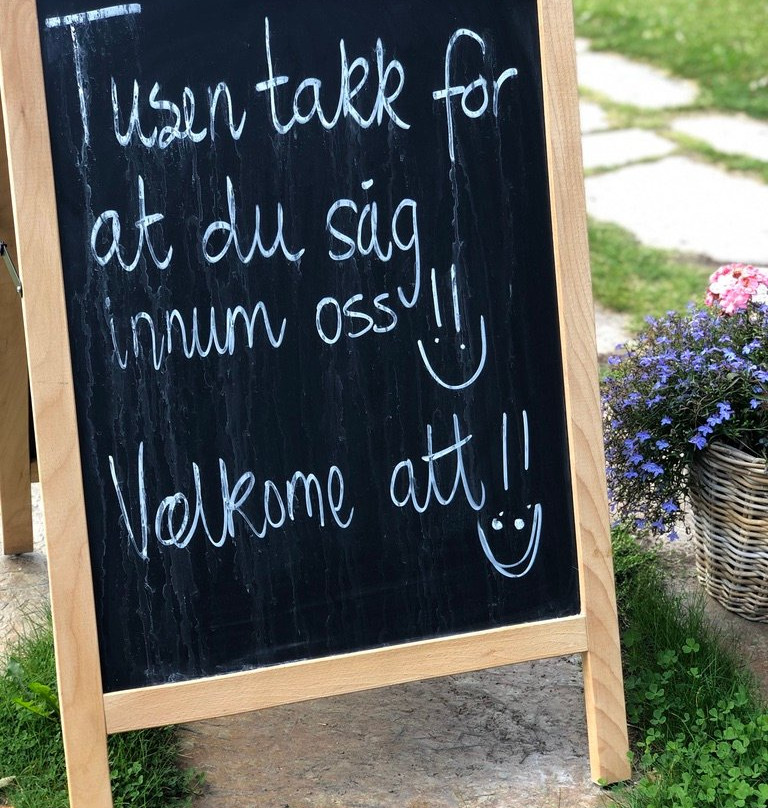 Tusen takk for
at du såg
innum oss!!
Vælkome att!!